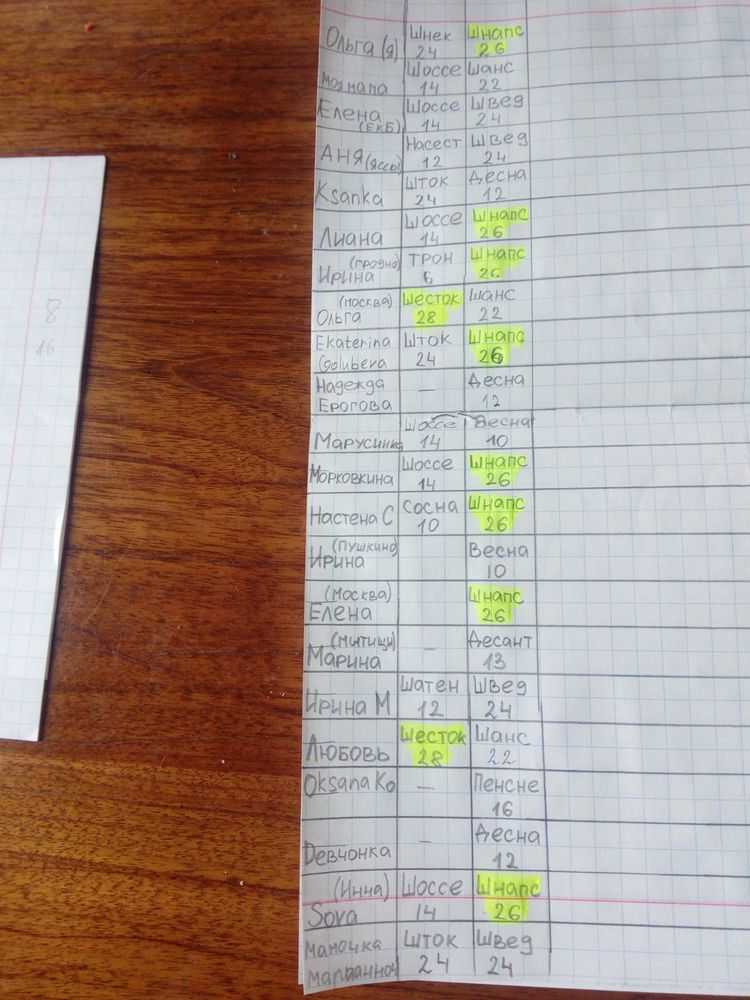 Ольга (я) Шнек Шнапс
24 26
Моя мапа Шоссе Шанс
14 22
Елена Шоссе Швед
(ЕКБ) 14 24
Аня (Яссы) Насест Швед
12 24
Ksanka Шток Десна
24 12
Лиана Шоссе Шнапс
14 26
(гродно) Трон Шнапс
Ирина 6 26
(москва) Шесток Шанс
Ольга 28 22
Ekaterina Шток Шнапс
Golubeva 24 26
Надежда — Десна
Ерогова 12
Марусинка Шоссе Весна
14 10
Морковкина Шоссе Шнапс
14 26
Настена С Сосна Шнапс
10 26
(Пушкино) Весна
Ирина 10
(Москва) Шнапс
Елена 26
(мытищи) — Десант
Марина 13
Ирина М Шатен Швед
12 24
Любовь Шесток Шанс
28 22
Oksana Ko — Пенсне
16
Девчонка — Десна
12
(Инна) Шоссе Шнапс
Sova 14 26
Мамочка Шток Швед
24 24
8
16